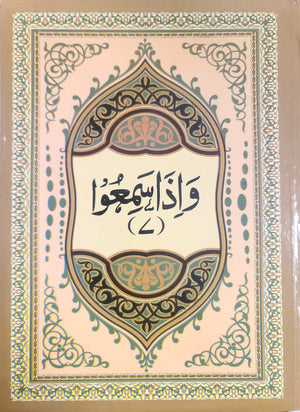 وَاِذَا سَمِعُوْا
(۷)